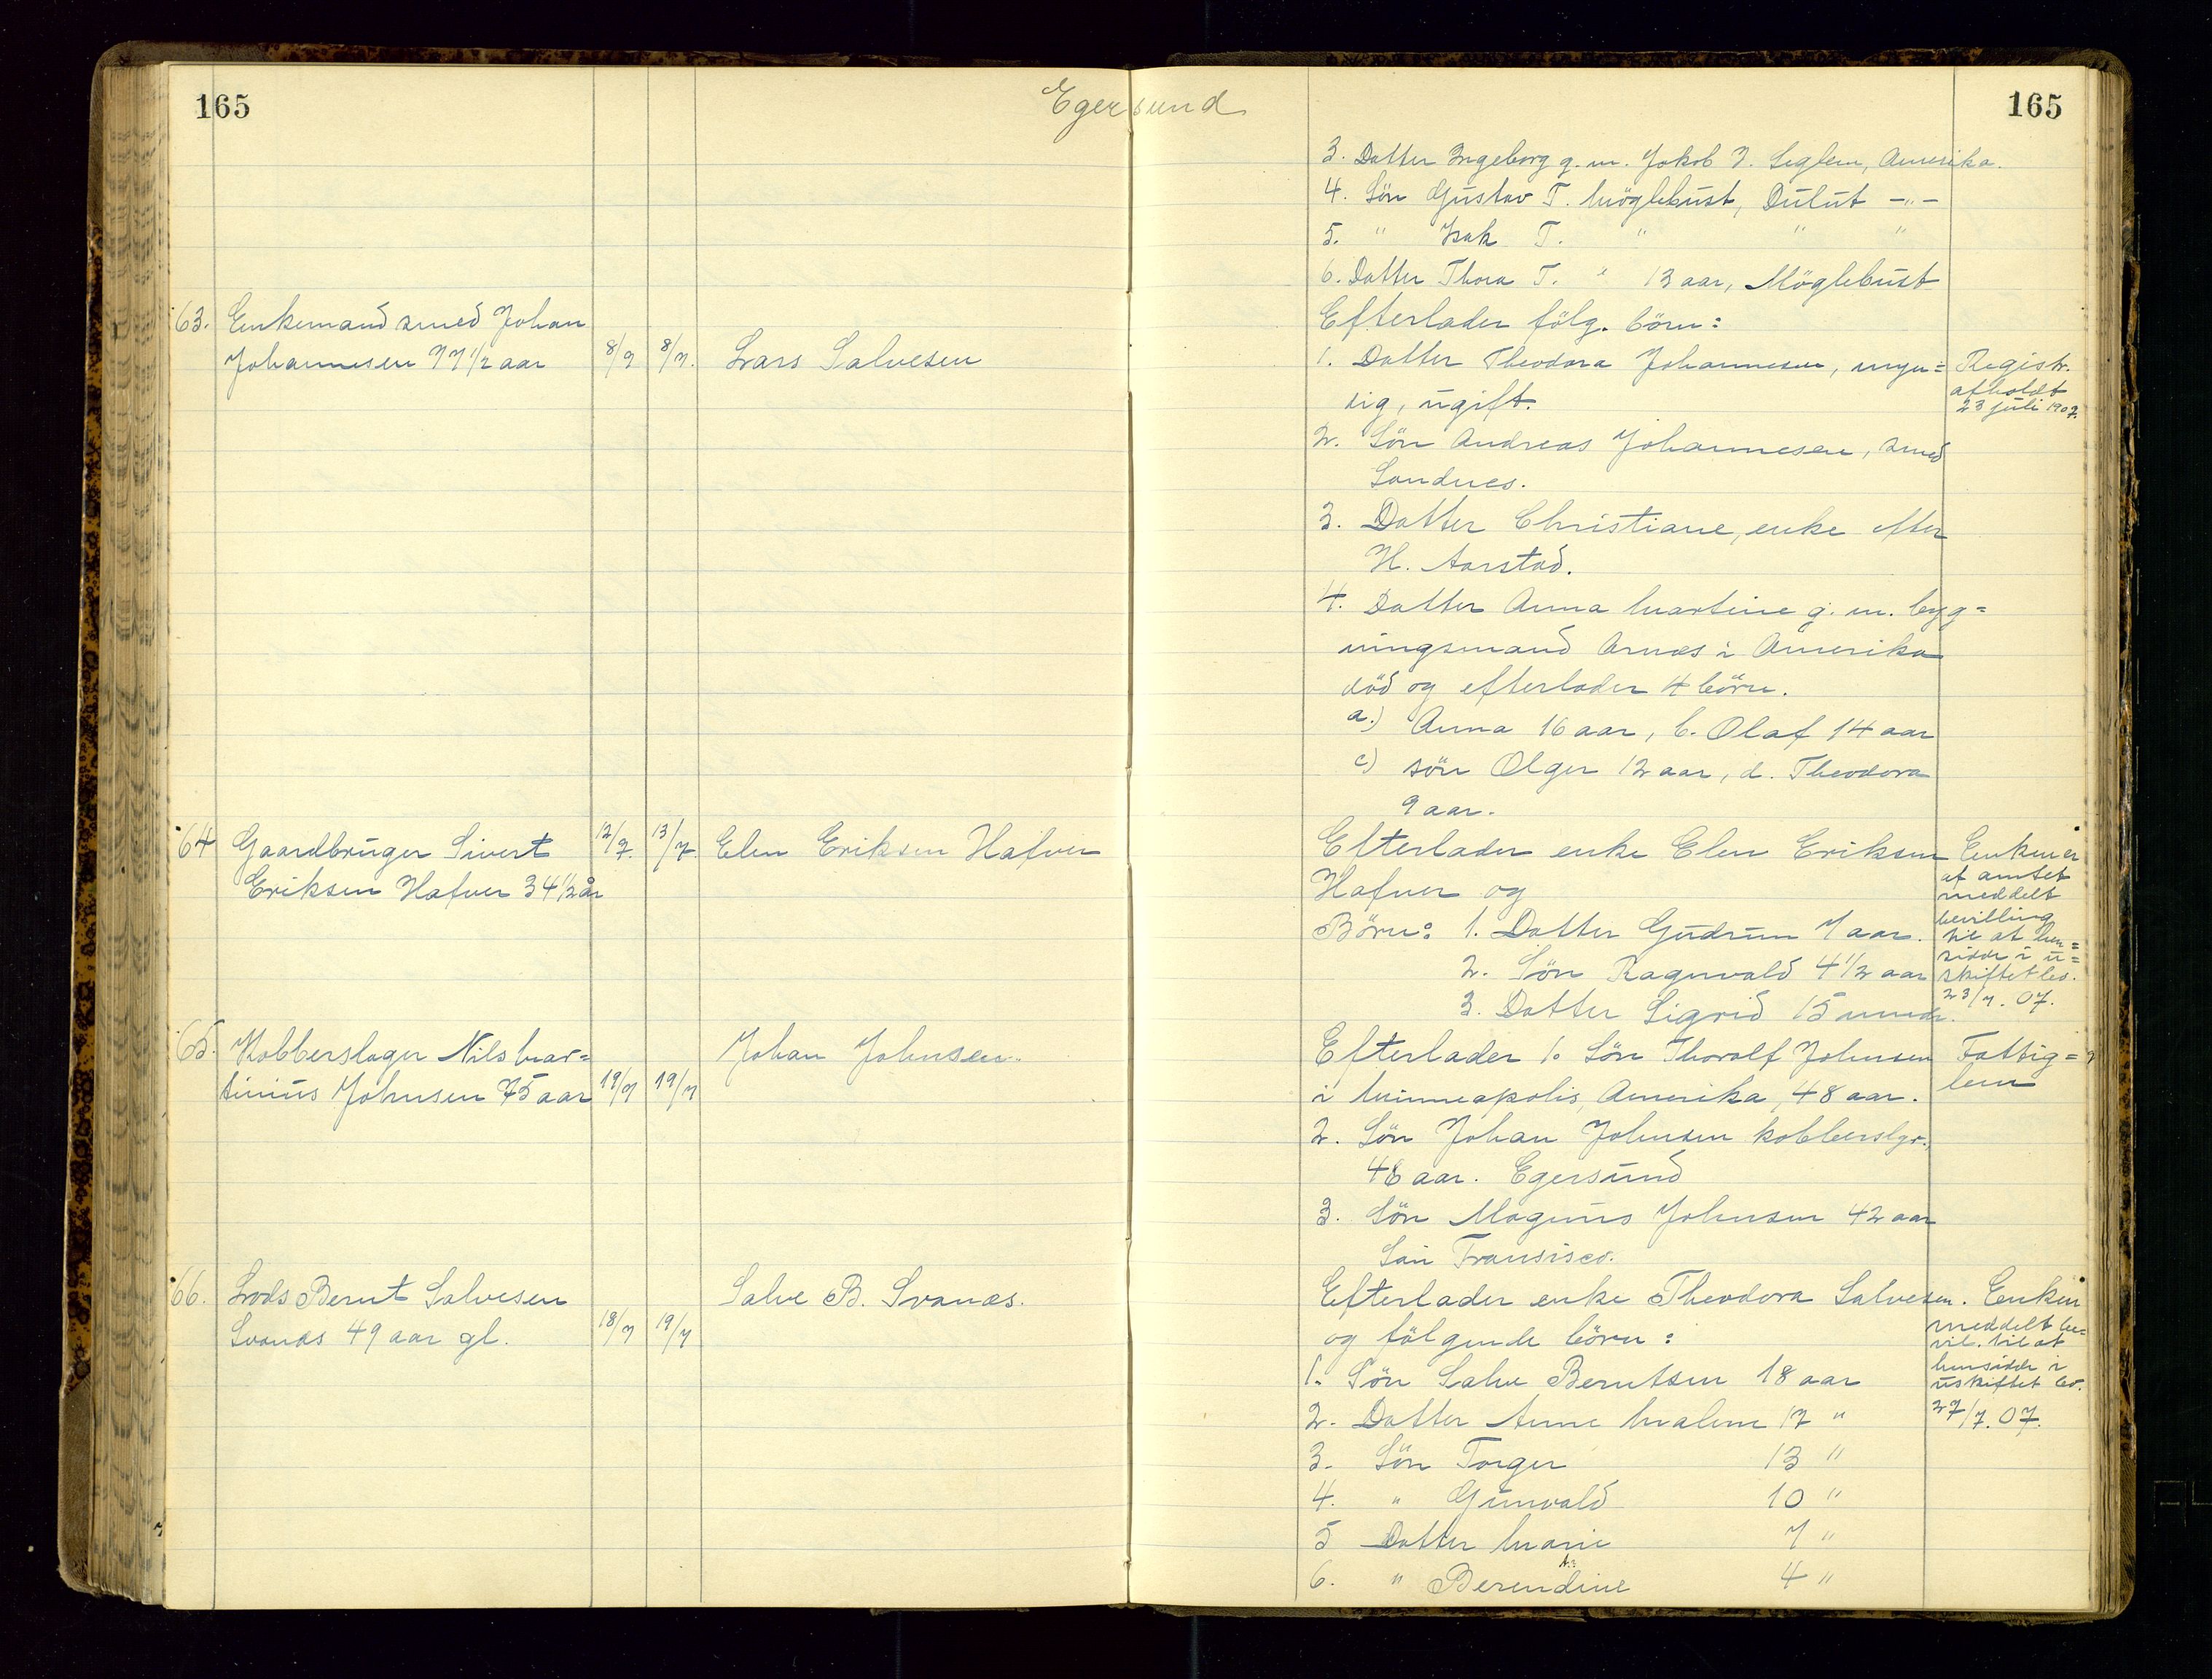 165
Egersund
165
3. Datter Ingeborg g. m. Jakob J. Seglem, Amerika.
4. Sön Gustav T. Möglebust, Dulut -"-
5. " Isak T. " " "
6. Datter Thora T. " 13 aar, Möglebust
63. Enkemand smed Johan
Johannesen 77 1/2 aar
8/7
8/7.
Lars Salvesen
Efterlader fölg. börn:
1. Datter Theodora Johannesen, myn=
dig, ugift.
2. Sön Andreas Johannesen, smed
Sandnes.
3. Datter Christiane, enke efter
H. Aarstad.
4. Datter Anna Martine g. m. byg=
ningsmand Arnæs i Amerika
död og efterlader 4 börn.
a.) Anna 16 aar, b. Olaf 14 aar
c) sön Olger 12 aar, d. Theodora
9 aar.
Registr.
afholdt
23 juli 1907.
64 Gaardbruger Sivert
Eriksen Hafver 34 1/2 år
12/7.
13/7.
Elen Eriksen Hafver
Efterlader enke Elen Eriksen
Hafver og
Börn: 1. Datter Gudrun 7 aar.
2. Sön Ragnvald 4 1/2 aar
3. Datter Sigrid 15 mndr.
Enken er
af amtet
meddelt
bevilling
til at hen=
sidde i u=
skiftet bo.
23/7. 07.
65. Kobberslager Nils Mar=
tinius Johnsen 75 aar
19/7
19/7
Johan Johnsen.
Efterlader 1. Sön Thoralf Johnsen
i Minneapolis, Amerika, 48 aar.
2. Sön Johan Johnsen kobberslgr.,
46 aar. Egersund
3. Sön Magnus Johnsen 42 aar
San Fransisco.
Fattig=
lem
66. Lods Bernt Salvesen
Svanæs 49 aar gl.
18/7
19/7
Salve B. Svanæs.
Efterlader enke Theodora Salvesen.
og fölgende börn:
1. Sön Salve Berntsen 18 aar
2. Datter Anne Malene 17 "
3. Sön Torger 13 "
4. " Gunvald 10 "
5 Datter Marie 7 "
6. " Berendine 4 "
Enken
meddelt be=
vil. til at
hensidde i
uskiftet bo.
27/7. 07.